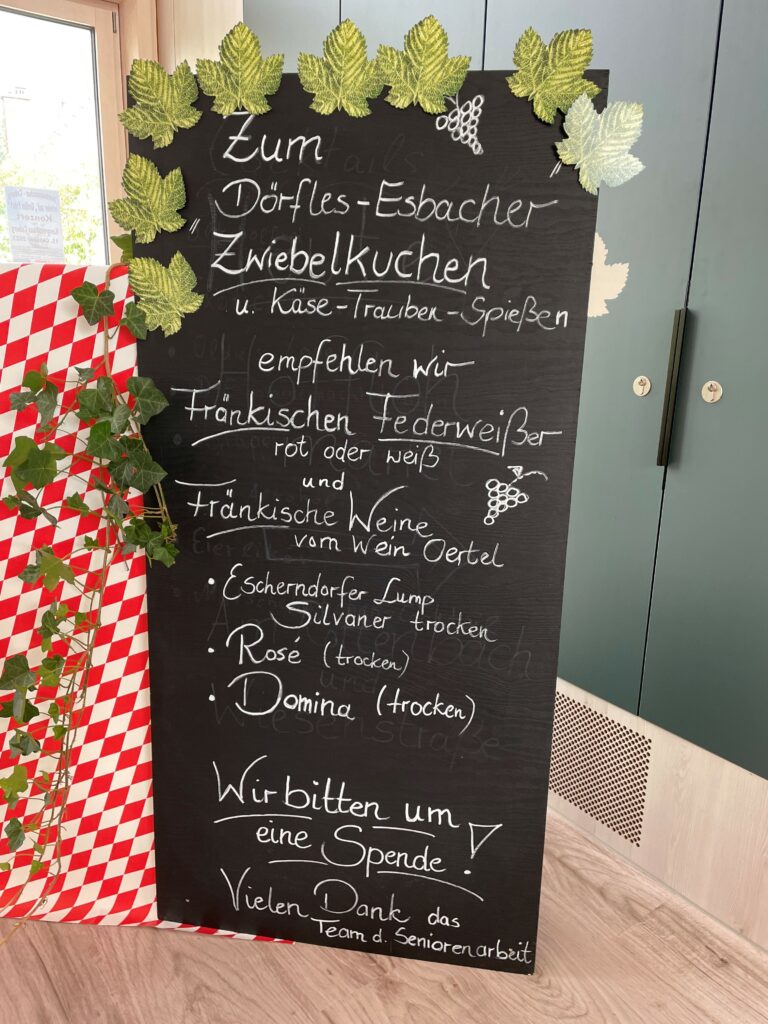 Zum
Dörfles-Esbacher
"Zwiebelkuchen"
u. Käse-Trauben-Spießen
empfehlen wir
Fränkischen Federweißer
rot oder weiß
und
Fränkische Weine
vom Wein Oertel
• Escherndorfer Lump
Silvaner trocken
• Rosé (trocken)
• Domina (trocken)
Wir bitten um
eine Spende!
Vielen Dank das
Team d. Seniorenarbeit
Konzert